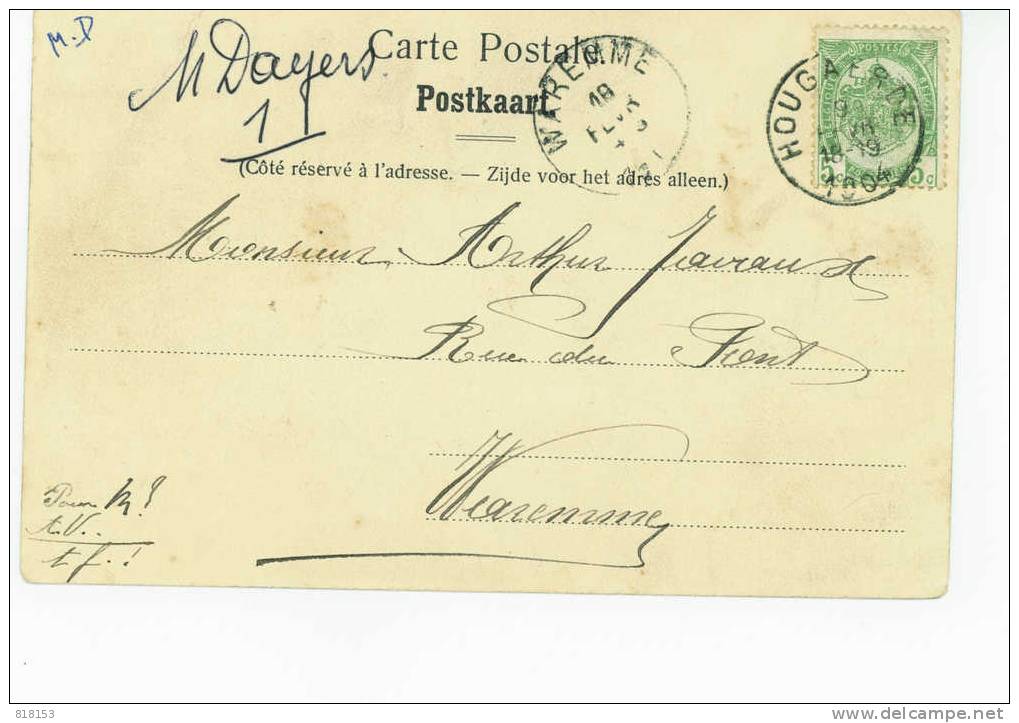 M-D
M Dayers
1
Carte Postale.
Postkaart
(Côté réservé à l'adresse. — Zijde voor het adres alleen.)
WAREMME
18
HOUGAERDE
18-19
1904
POSTES
5c 5c
Monsieur Arthur Javaux
Rue du Pont
Waremme
Pour
t.V..
t f.!
818153
www.delcampe.net